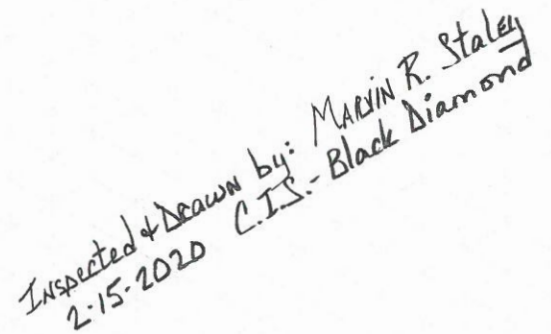 Inspected & Drawn by: Marvin R. Staley
2-15-2020 C.I.S.- Black Diamond